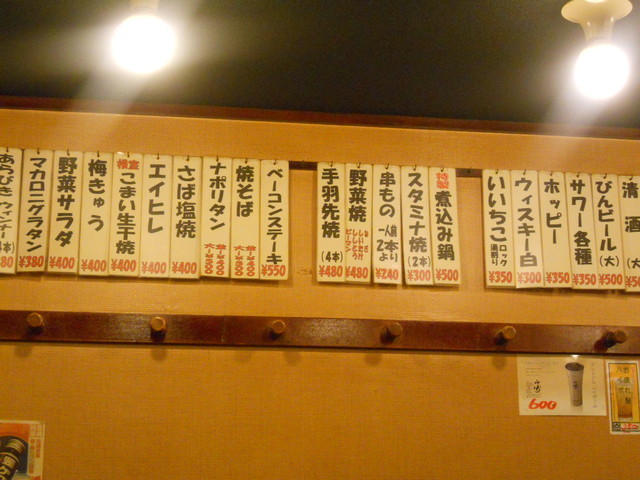 清酒(大)
びんビール(大)¥500
サワー各種¥350
ホッピー¥350
ウィスキー白¥350
いいちこ ロック 湯割り ¥350
特製 煮込み鍋¥500
スタミナ焼(2本)¥300
串もの 一人前2本より¥240
野菜焼 ねぎ しいたけ ししとう ピーマン ¥480
手羽先焼(4本)¥480
ベーコンステーキ¥550
焼そば
ナポリタン
さば塩焼¥400
エイヒレ¥400
根室 こまい生干焼¥400
梅きゅう¥400
野菜サラダ¥400
マカロニグラタン¥380
あらびきウィンナー
600